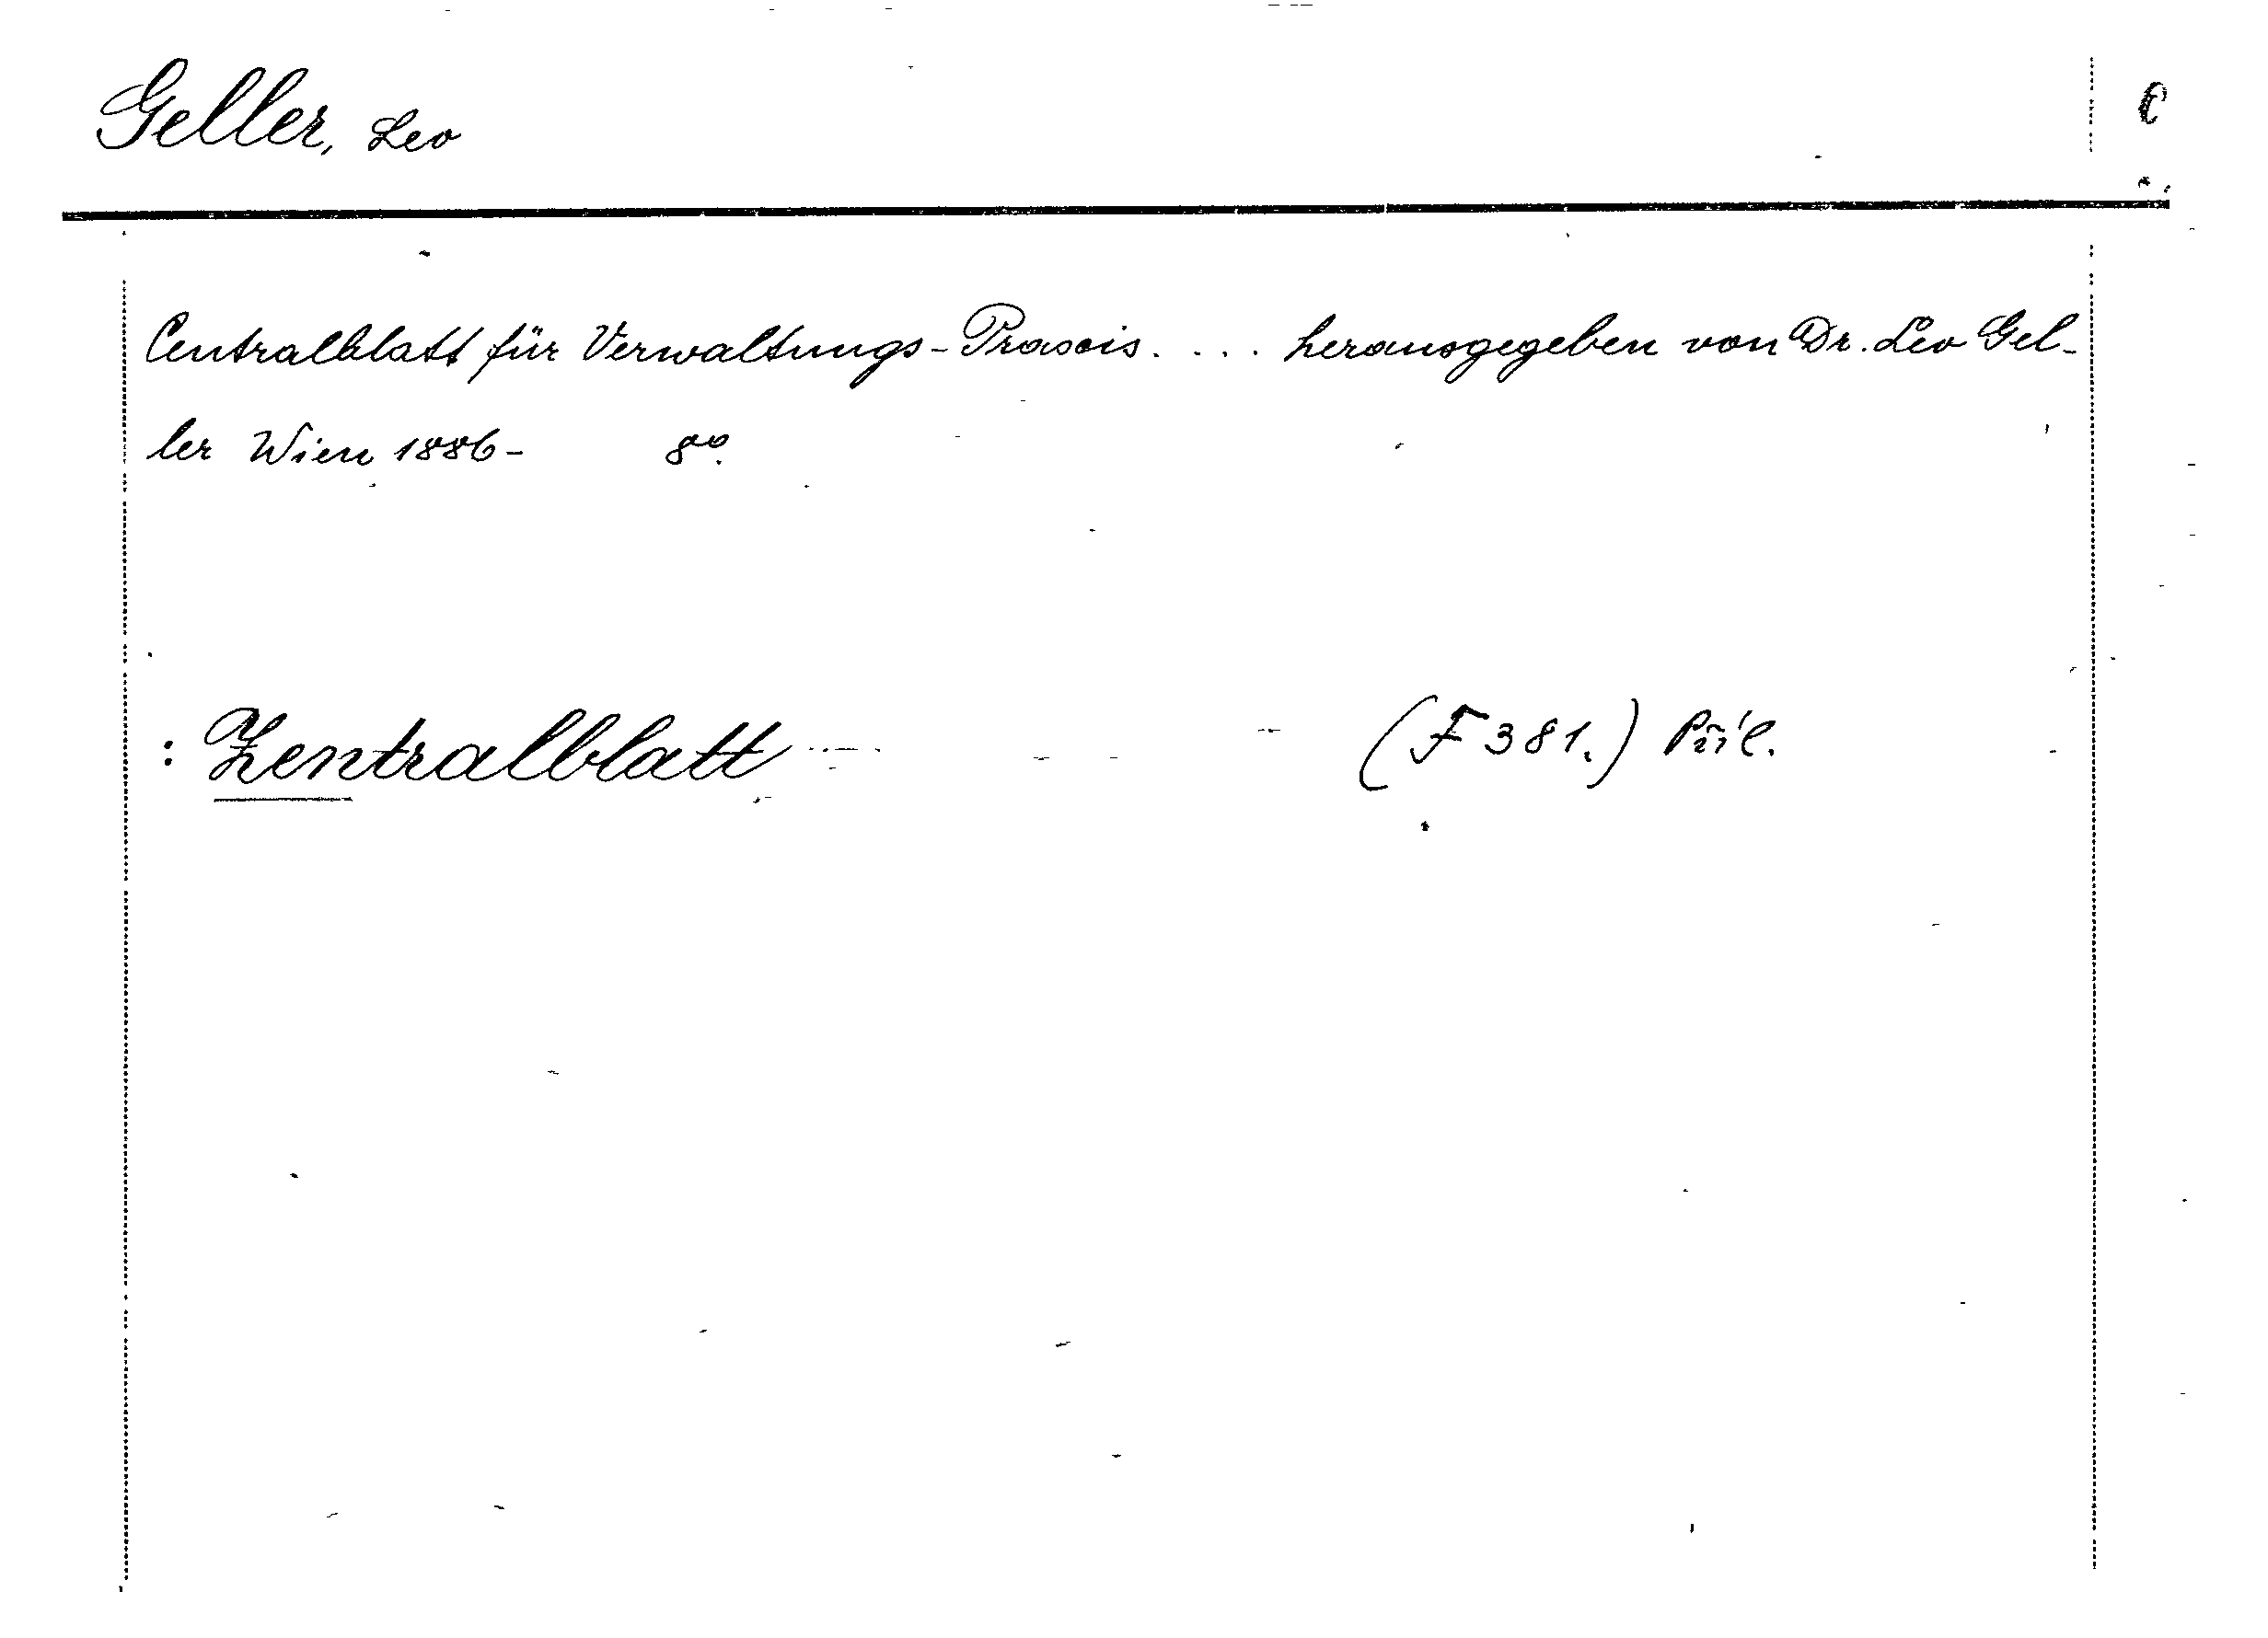 Geller, Leo
Centralblatt für Verwaltungs-Praxis. ... herausgegeben von Dr. Leo Gel-
ler Wien 1886- 8°.
: Zentralblatt (F 381.) Příl.